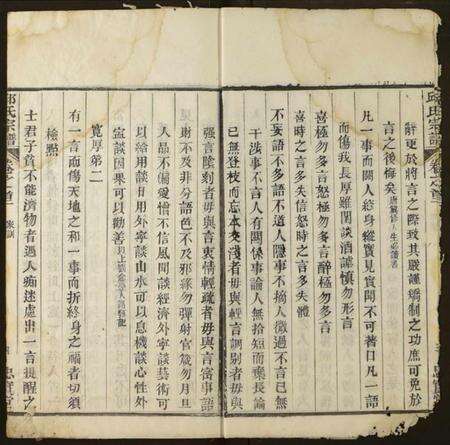 邱氏宗譜
卷之首
辭更於將言之際致其嚴謹矯制之功庶可免於
言之後悔矣
凡一事而關人終身縱實見實聞不可著口凡一語
而傷我長厚雖閒談酒謔慎勿形言
喜極勿多言怒極勿多言醉極勿多言
喜時之言多失信怒時之言多失體
不妄語不多語不道人隱事不摘人微過不言己無
干涉事不言人有關係事論人無拾短而棄長論
己無登枝而忘本交淺者毋與輕言調别者毋與
強言陰刻者毋與言衷情輕疏者毋與言密事語
財不及非分語色不及邪緣勿彈射官箴勿月旦
人品不偏愛憎不信風聞談經濟外寧談藝術可
以給用談日用外寧談山水可以息機談心性外
寧談因果可以勸善
寬厚第二
有一言而傷天地之和一事而折終身之福者切須
檢點
士君子貧不能濟物者遇人痴迷處出一言提醒之
邱氏宗譜
卷之首
家訓